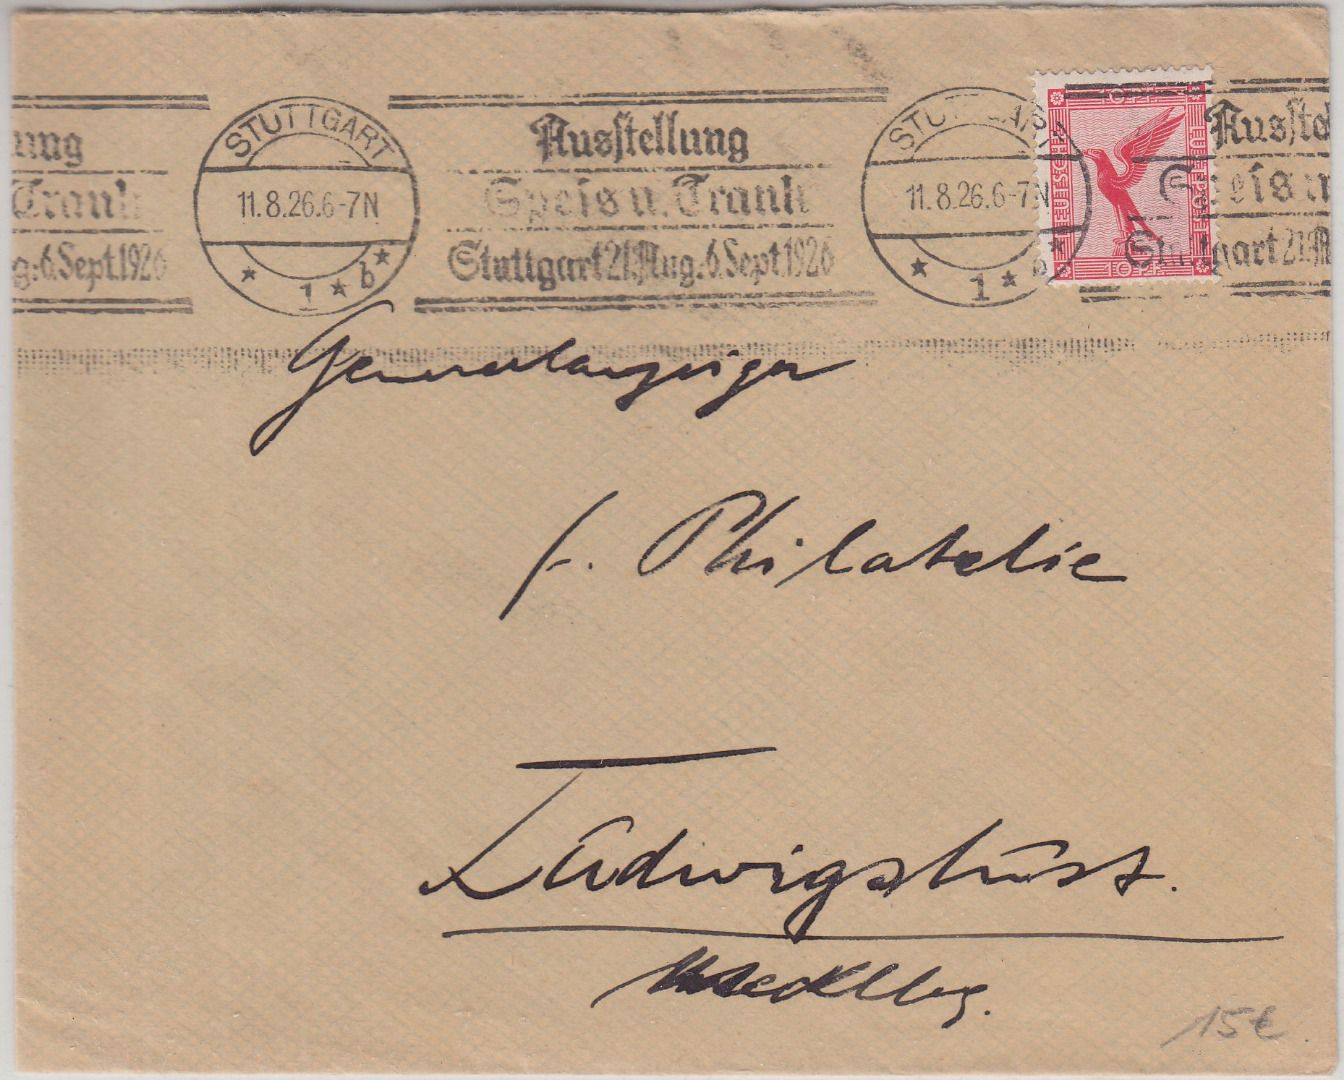 ung
Trank
g: 6. Sept. 1926
STUTTGART
11.8.26.6-7N
* 1 * b *
Ausstellung
Speis u. Trank
Stuttgart 21. Aug: 6. Sept. 1926
STUTTGART
11.8.26.6-7N
* 1 * b
10 PF
DEUTSCHE
LUFTPOST
10 PF
Ausste
Speis u
Stuttgart 21. A
Generalanzeiger
f. Philatelie
Ludwigslust.
Mecklbg.
15€